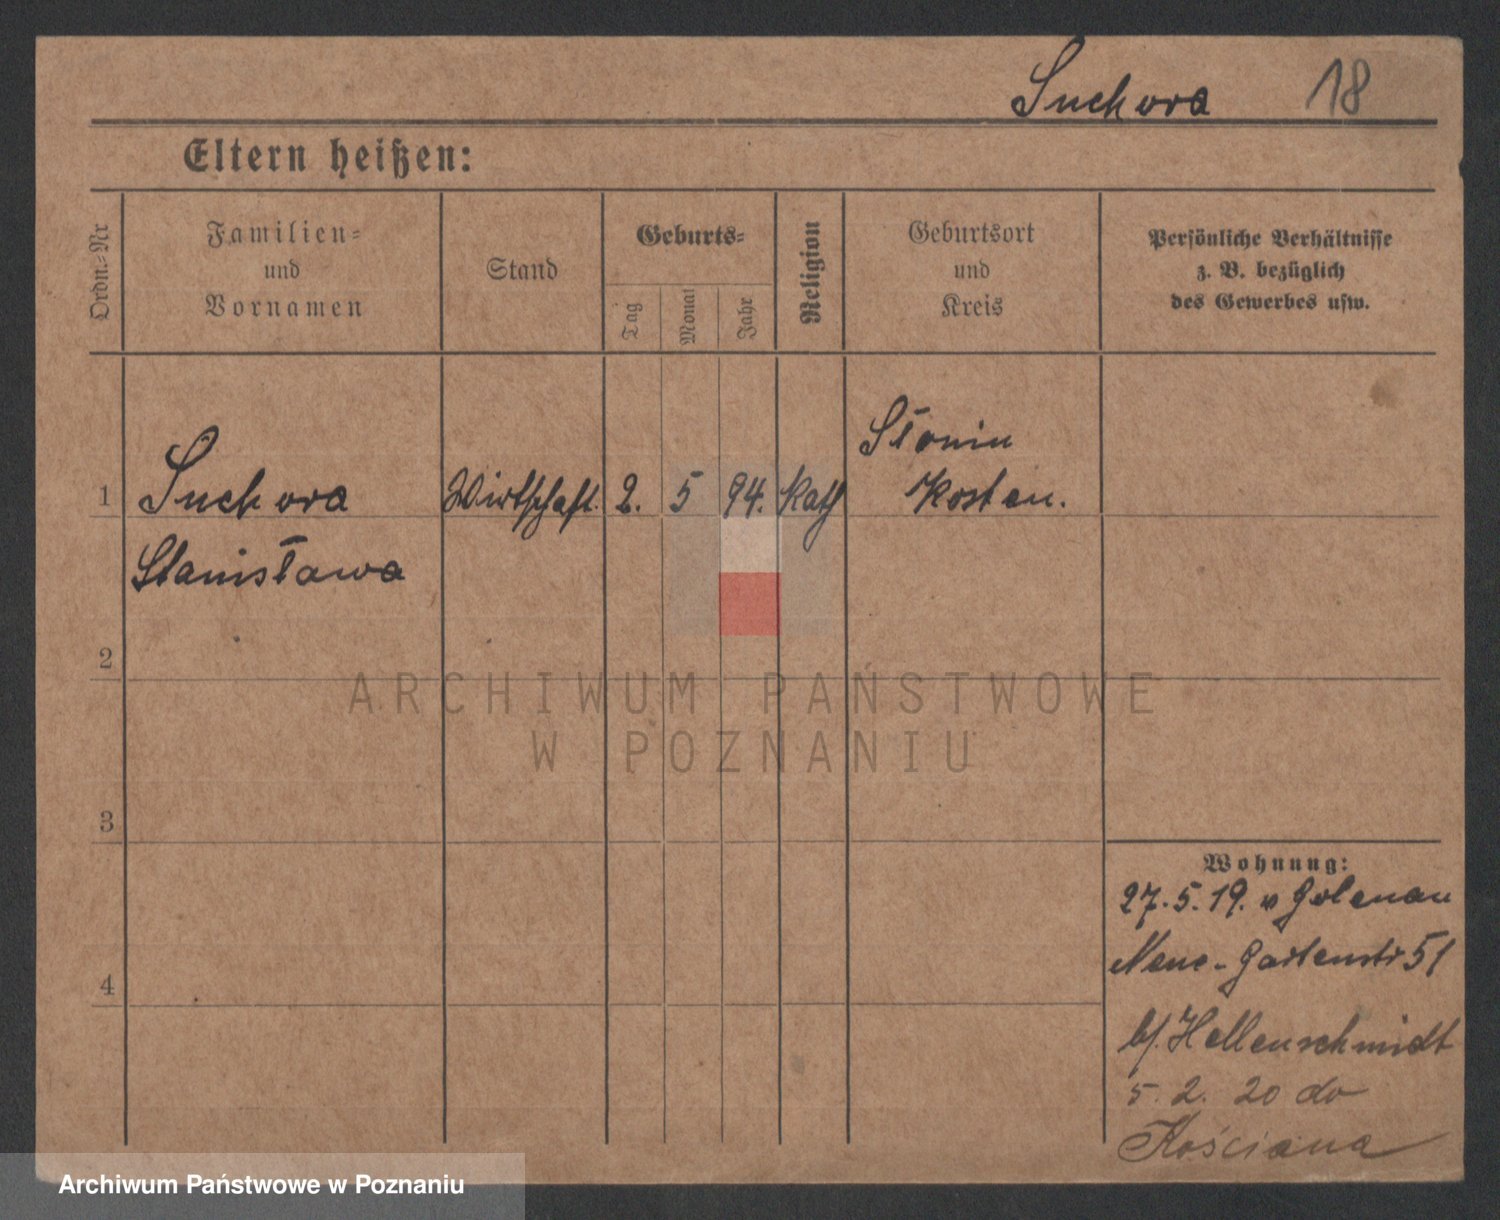 Suchora 18
Eltern heißen:
Ordn.-Nr
Familien-
und
Vornamen
Stand
Geburts-
Tag
Monat
Jahr
Religion
Geburtsort
und
Kreis
Persönliche Verhältnisse
z. B. bezüglich
des Gewerbes usw.
1 Suchora Wirtschaft. 2. 5 94. Kath
Stanisława
Słonin
Kosten.
2
3
4
Wohnung:
27.5.19. v Golenau
Neue-Gartenstr 51
b/. Hellenschmidt
5. 2. 20 do
Kościana
ARCHIWUM PAŃSTWOWE
W POZNANIU
Archiwum Państwowe w Poznaniu